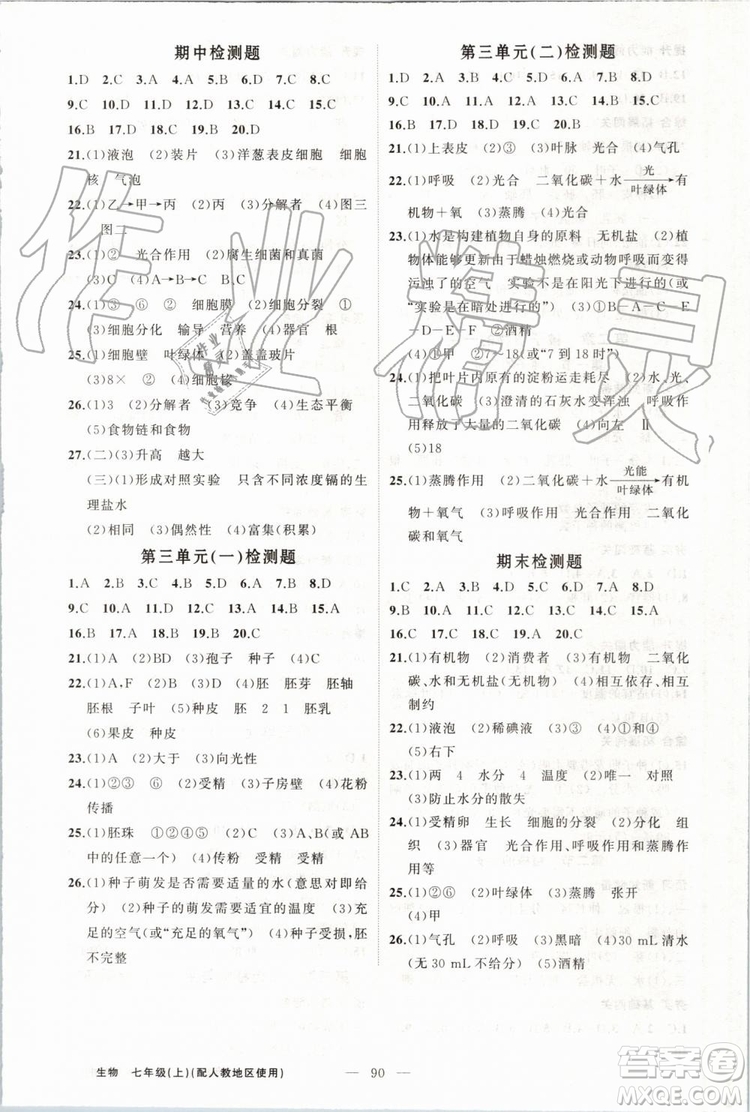 期中检测题
1.D 2.C 3.A 4.A 5.B 6.D 7.B 8.C
9.C 10.D 11.D 12.C 13.C 14.C 15.C
16.B 17.D 18.D 19.B 20.D
21.(1)液泡 (2)装片 (3)洋葱表皮细胞 细胞
核 气泡
22.(1)乙→甲→丙 (2)丙 (3)分解者 (4)图三
图二
23.(1)①② 光合作用 (2)腐生细菌和真菌
(3)C (4)A→B→C
24.(1)③ ⑥ ② (2)细胞膜 (2)细胞分裂 ①
(3)细胞分化 输导 营养 (4)器官 根
25.(1)细胞壁 叶绿体 (2)盖盖玻片
(3)8× ② (4)细胞核
26.(1)3 (2)分解者 (3)竞争 (4)生态平衡
(5)食物链和食物
27.(二)(3)升高 越大
(三)(1)形成对照实验 只含不同浓度镉的生
理盐水
(2)相同 (3)偶然性 (4)富集(积累)
第三单元(一)检测题
1.A 2.B 3.C 4.B 5.D 6.A 7.B 8.D
9.C 10.A 11.B 12.C 13.D 14.B 15.A
16.B 17.B 18.B 19.B 20.C
21.(1)A (2)BD (3)孢子 种子 (4)C
22.(1)A,F (2)B (3)E (4)胚 胚芽 胚轴
胚根 子叶 (5)种皮 胚 2 1 胚乳
(6)果皮 种皮
23.(1)A (2)大于 (3)向光性
24.(1)①②③ ⑥ (2)受精 (3)子房壁 (4)花粉
传播
25.(1)胚珠 (2)①→④→② (3)A、B(或 AB
中的任意一种) (4)传粉 受精 受精
26.(1)种子萌发是否需要适量的水(意思对即给
分) (2)种子的萌发需要适宜的温度 (3)充
足的空气(或“充足的氧气”) (4)种子受损,胚
不完整
第三单元(二)检测题
1.D 2.A 3.C 4.B 5.A 6.C 7.D 8.B
9.C 10.B 11.C 12.B 13.A 14.C 15.D
16.B 17.D 18.D 19.D 20.C
21.(1)上表皮 (2)③ (3)叶脉 (4)气孔
22.(1)呼吸 (2)光合 二氧化碳+水 光/叶绿体→ 有
机物+氧 (3)蒸腾 (4)光合
23.(1)水是构建植物自身的原料 无机盐 (2)植
物体能够更新由于蜡烛燃烧或动物呼吸而变得
污浊了的空气 实验是在阳光下进行的(或
“实验是在暗处进行的”) (3)①B—A—C—E
—D—E—F ②酒精
(4)①甲 ②7~18(或“7 到 18 时”)
24.(1)把叶片内原有的淀粉运走耗尽 (2)水、光、
二氧化碳 (3)澄清的石灰水变浑浊 呼吸作
用释放了大量的二氧化碳 (4)向左 Ⅱ
(5)18
25.(1)蒸腾作用 (2)二氧化碳+水 光能/叶绿体→ 有机
物+氧气 (3)呼吸作用 (4)水 二氧化碳
和氧气
期末检测题
1.C 2.A 3.C 4.B 5.C 6.D 7.B 8.D
9.D 10.B 11.D 12.B 13.C 14.C 15.A
16.C 17.D 18.D 19.A 20.C
21.(1)有机物 (2)消费者 (3)有机物 二氧化
碳、水和无机盐(无机物) (4)相互依存、相互
制约
22.(1)液泡 (2)稀碘液 (3)③ (4)①④②③
(5)右下
23.(1)两 4 水分 4 温度 (2)唯一 对照
(3)防止水分的散失
24.(1)受精卵 生长 细胞的分裂 (2)分化 组
织 (3)器官 光合作用、呼吸作用和蒸腾
作用等
25.(1)②⑥ (2)叶绿体 (3)蒸腾 张开
(4)甲
26.(1)气孔 (2)呼吸 (3)黑暗 (4)30 mL 清水
(无 30 mL不给分) (5)酒精
生物 七年级(上)(配人教地区使用)
— 90 —
作业精灵